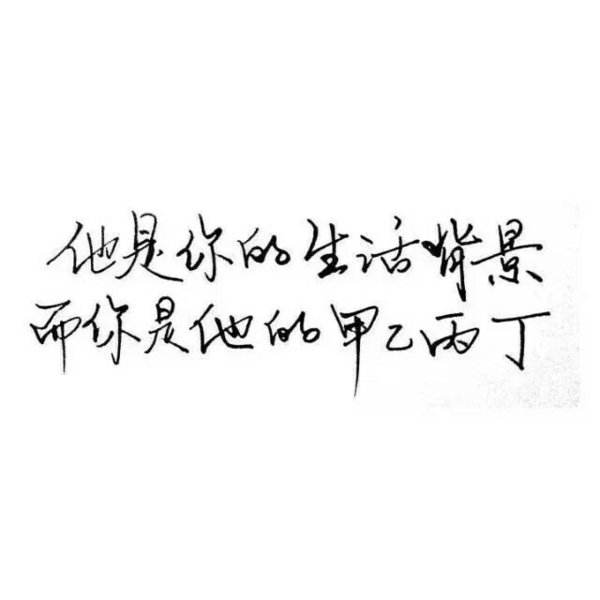 他是你的生活背景
而你是他的甲乙丙丁